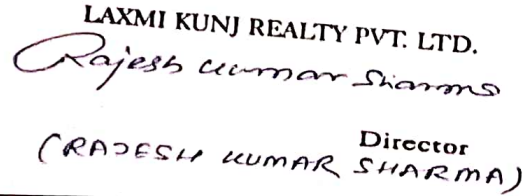 LAXMI KUNJ REALTY PVT. LTD.
Rajesh Kumar Sharma
Director
(RAJESH KUMAR SHARMA)